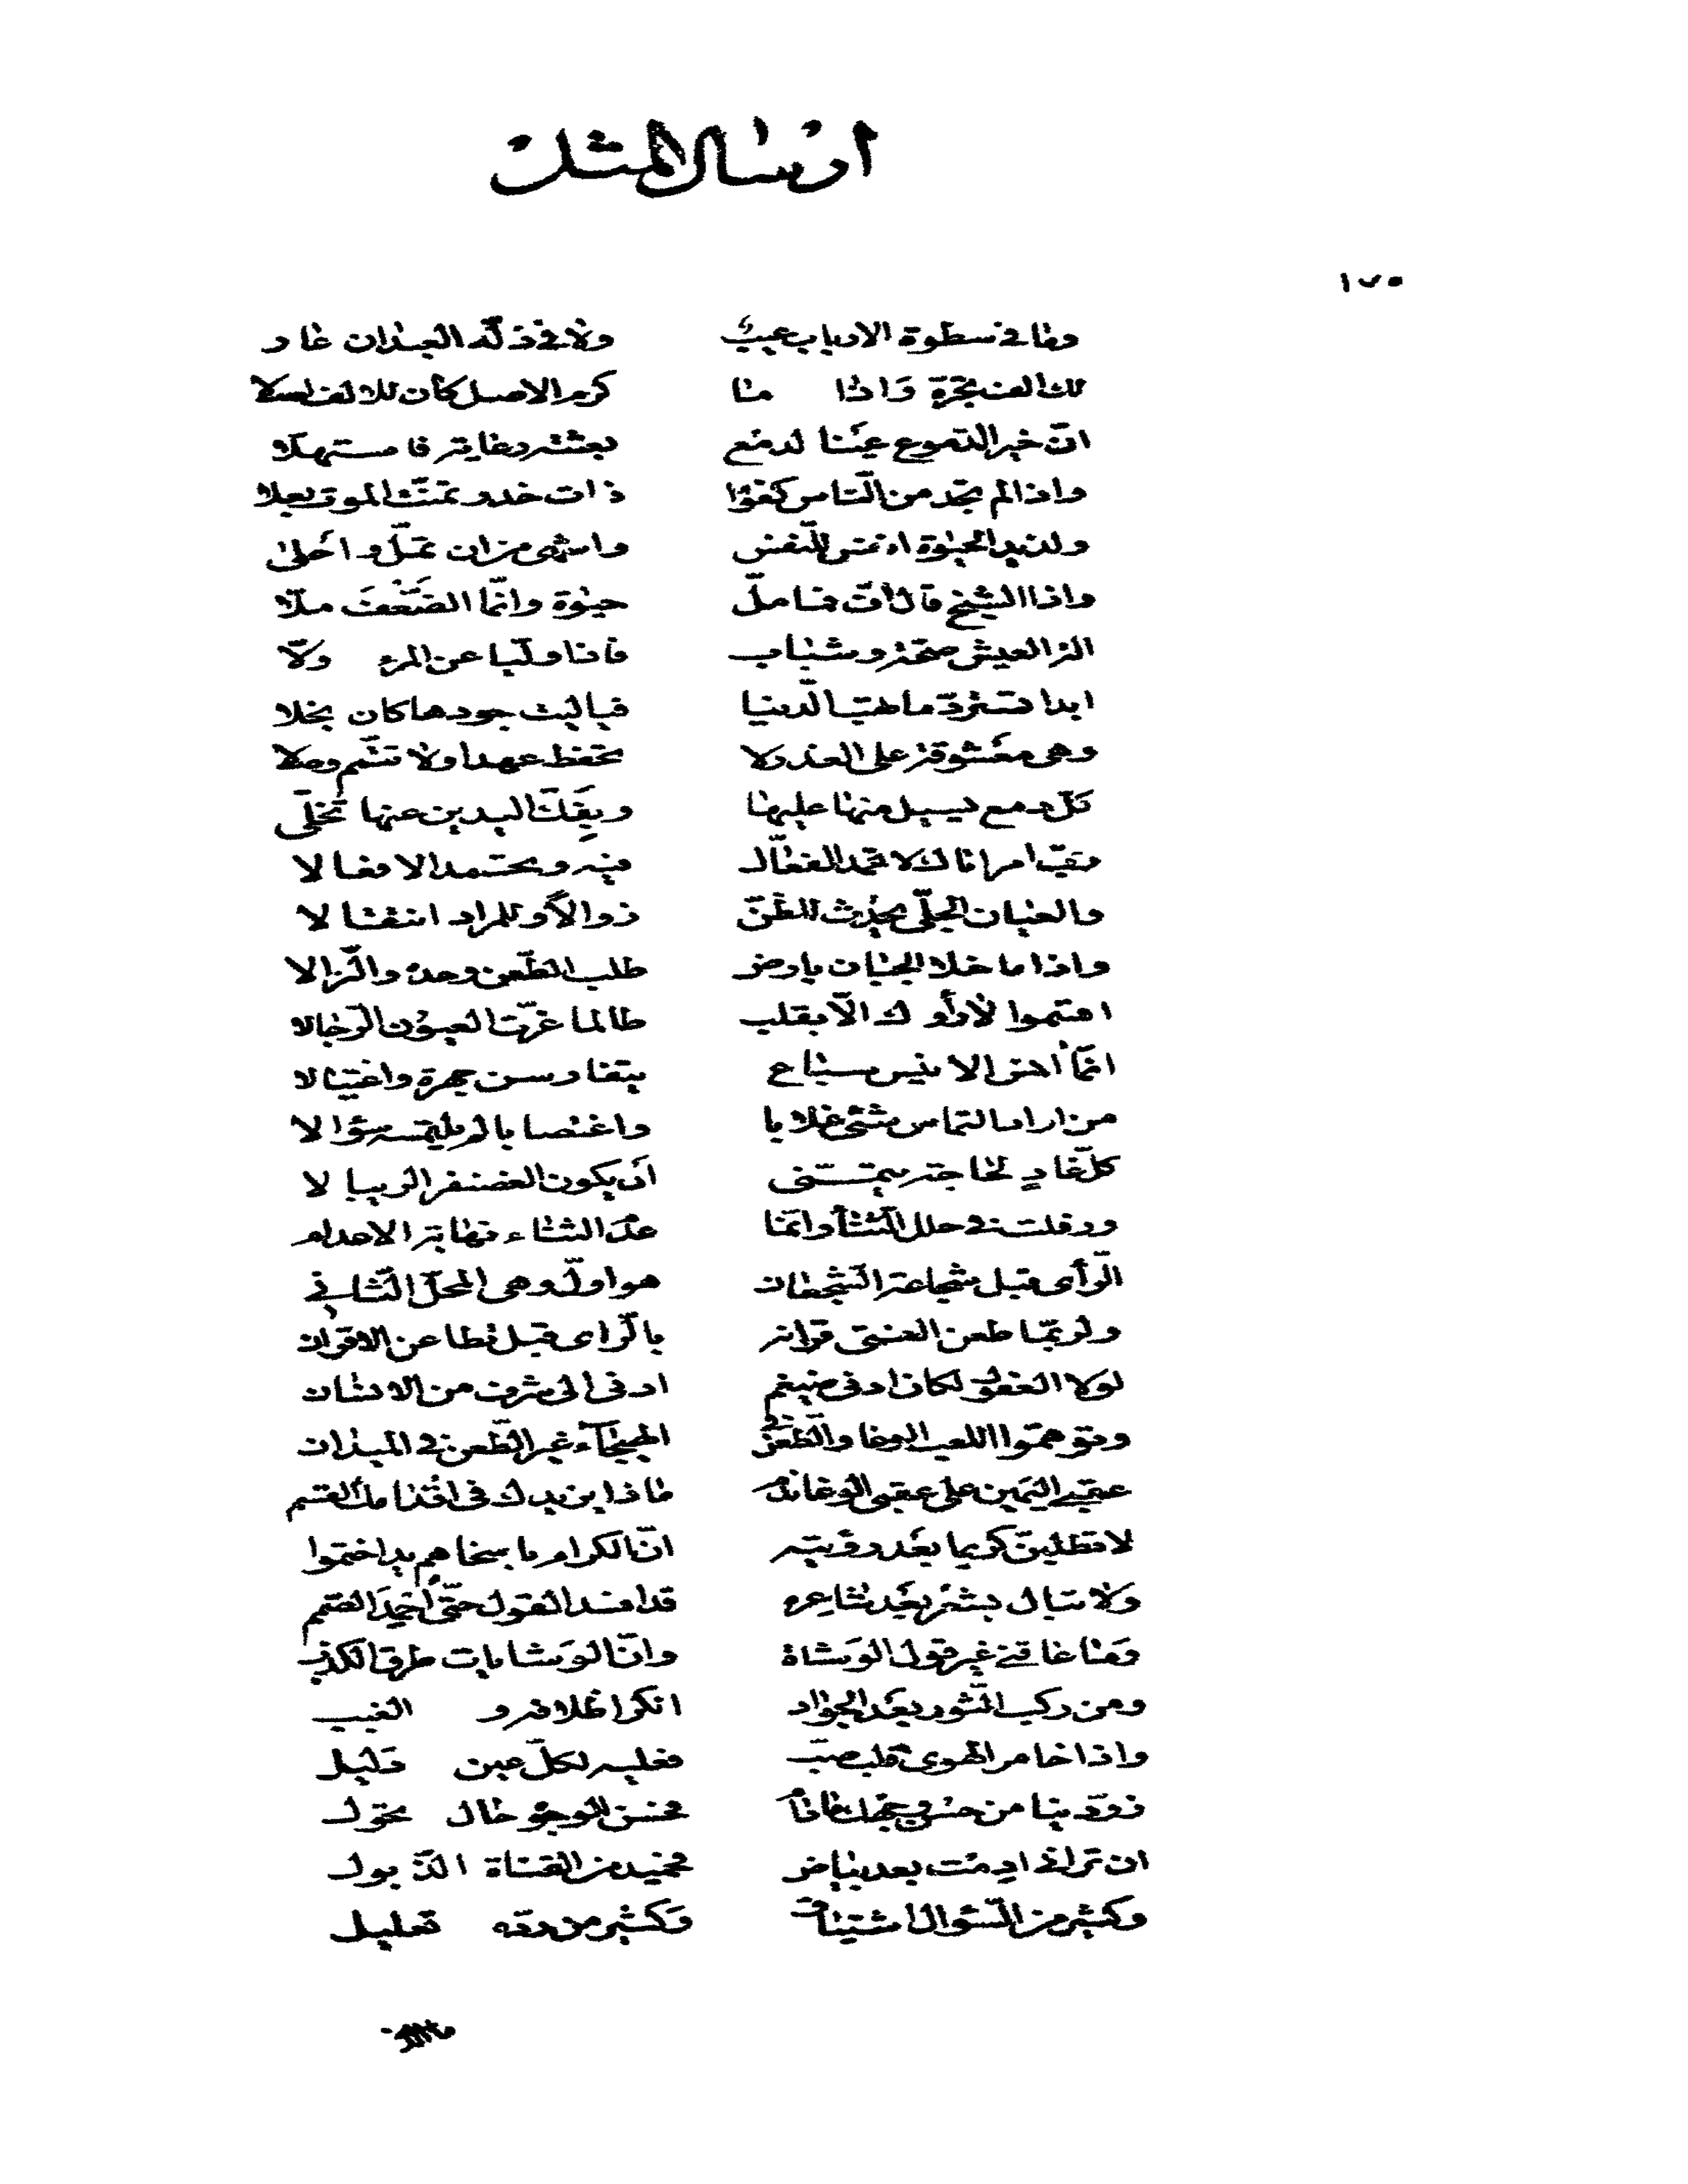 ارسال المثل
١٧٥
وما في سطوة الارباب عيب ولا في ذلّة العبدان عار
لك الف يجرّه واذا ما كرم الاصل كان للالف اصلا
انّ خير الدموع عينا لدمع بعثته رعاية فاستهلّا
واذا لم تجد من الناس كفوا ذات خدر تمنّت الموت بعلا
ولذيذ الحيوة انفس للنفس واشهى من ان تملّ واحلى
واذا الشيخ قال افّ فما ملّ حيوة وانّما الضعف ملّا
الة العيش صحّة وشباب فاذا ولّيا عن المرء ولّا
ابدا تستردّ ما تهب الدنيا فياليت جودها كان بخلا
وهي معشوقة على الغدر لا تحفظ عهدا ولا تتمّم وصلا
كلّ دمع يسيل منها عليها وبفكّ اليدين عنها تخلّى
ربّ امر اتاك لا تحمد الفعّال فيه وتحتمد الافعالا
والعيان الجلّي يحدث للظنّ زوالا وللمراد انتقالا
واذا ما خلا الجبان بارض طلب الطعن وحده والنزالا
اقسموا لا رأوك الّا بقلب طالما غرّت العيون الرجالا
انّما انفس الانيس سباع يتفارسن جهرة واغتيالا
من اراد التماس شئ غلابا واغتصابا لم يلتمسه سؤالا
كلّ غاد لحاجة يتمنّى أن يكون الغضنفر الرئبالا
ورفلت في حلل الثنأ وانّما عدم الثناء نهاية الاعدام
الرأى قبل شجاعة الشجعان هو اولّ وهى المحلّ الثاني
ولربّما طعن الفتى اقرانه بالرّاى قبل تطاعن الاقران
لولا العقول لكان ادنى ضيغم ادنى الى شرف من الانسان
وتوهّموا اللعب الوغا والطعن في الهيجاء غير الطعن في الميدان
عقبى اليمين على عقبى الوغا ندم ماذا يزيدك فى اقدامك القسم
لا تطلبنّ كريما بعد رؤيته انّ الكرام باسخاهم يدا ختموا
ولا تبال بشعر بعد شاعره قد افسد القول حتّى أحمد الصمم
وما عاقني غير قول الوشاة وانّ الوشايات طرق الكذب
ومن ركب الثور بعد الجواد انكر اظلافه و الغبب
واذا خامر الهوى قلب صبّ فعليه لكلّ عين دليل
زوّدينا من حسن وجهك ماداما فحسن الوجوه حال تحول
ان تراني ادمت بعد بياض فحميد من القناة الذبول
وكثير من السّؤال اشتياق وكثير من ردّه تعليل